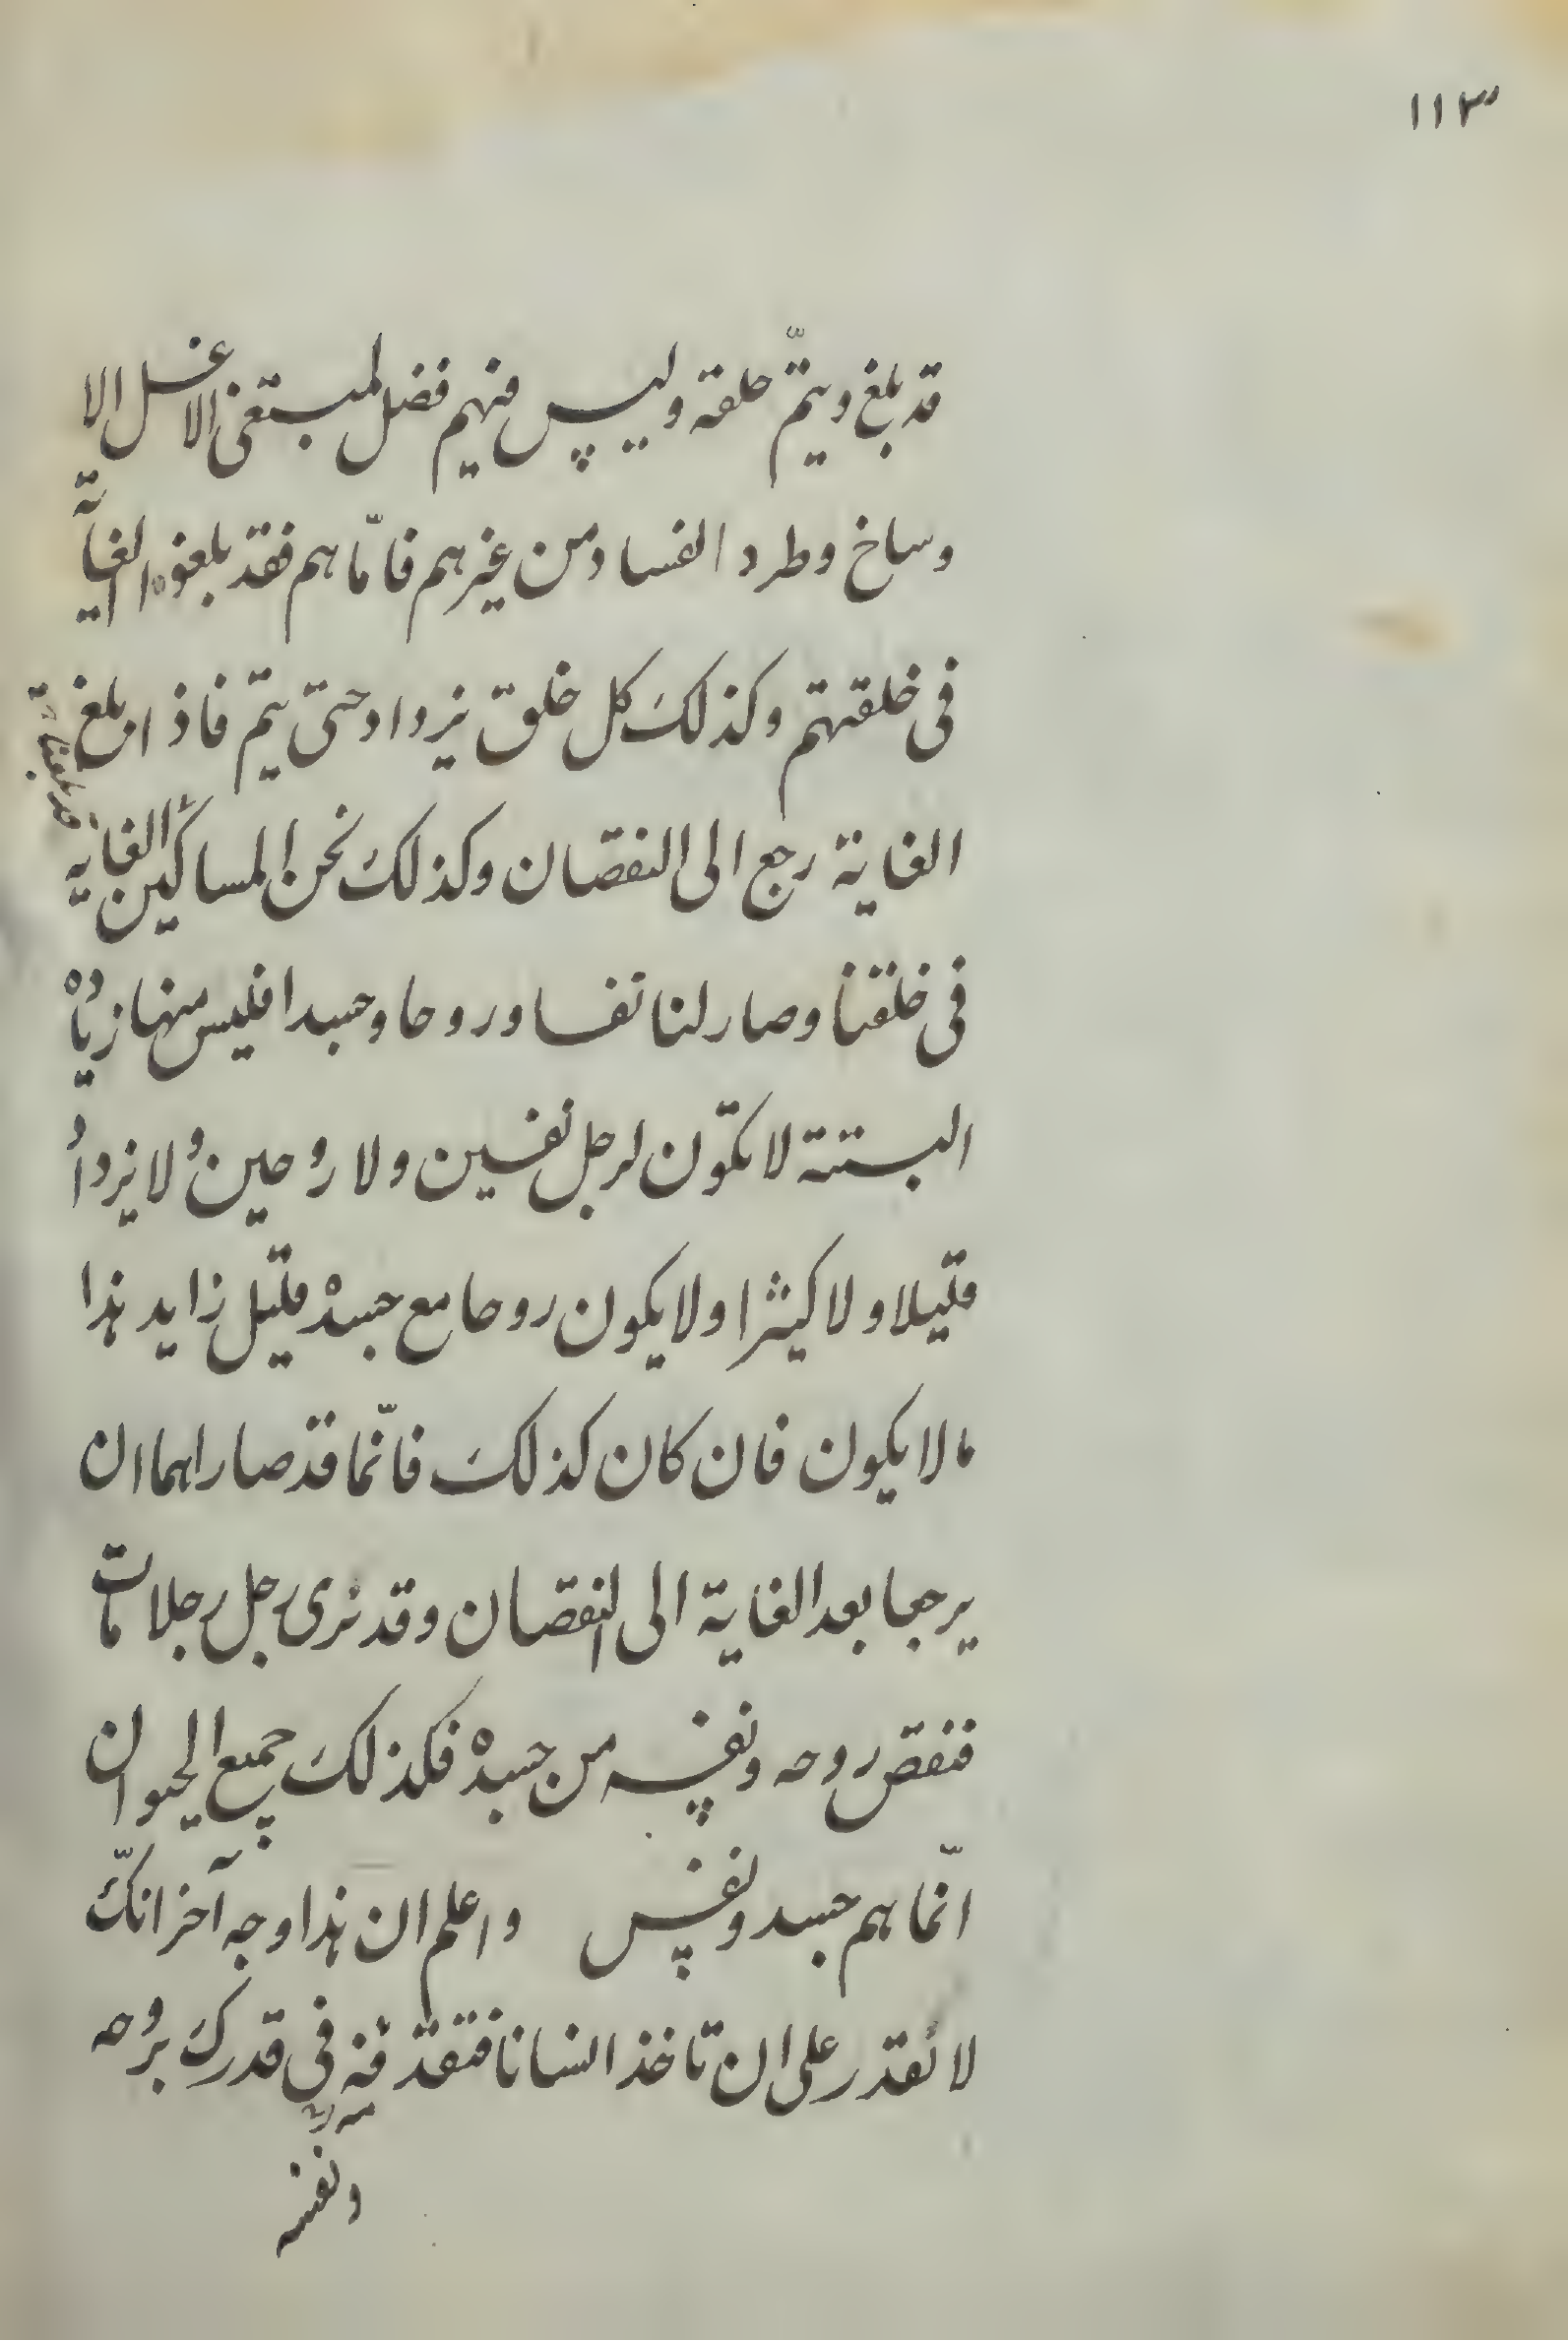 ١١٣
قد بلغ ويتمّ خلقه وليس فيهم فضل لمبتغى الا غسل الا
وساخ وطرد الفساد من غيرهم فامّا هم فقد بلغوا الغاية
فى خلقتهم وكذلك كل خلق يزداد حتى يتمّ فاذا بلغ
الغاية رجع الى النقصان وكذلك نحن المساكين قد بلغنا الغاية
فى خلقتنا وصار لنا نفسا وروحا وجسدا فليس منها زيادة
البتة لا تكون لرجل نفسين ولا روحين ولا يزداد
قليلا ولا كثيرا ولا يكون روحا مع جسده قليل زايد هذا
ما لا يكون فان كان كذلك فانّما قد صارا هما ان
يرجعا بعد الغاية الى النقصان وقد نرى رجل رجلا مات
فنقص روحه ونفسه من جسده فكذلك جميع الحيوان
انّما هم جسد ونفس واعلم ان هذا وجه آخر انّك
لا تقدر على ان تاخذ انسانا فتقذفه فى قدرك بروحه
ونفسه